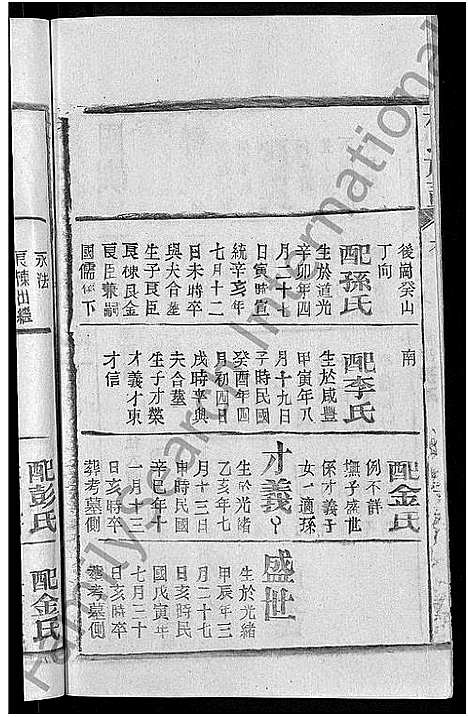 後崗癸山
丁向
配孫氏
生於道光
辛卯年四
月二十七
日寅時宣
統辛亥年
七月十二
日未時卒
與夫合墓
生子良臣
良棟良金
良臣兼嗣
國儒位下
南
配李氏
生於咸豐
甲寅年八
月十九日
子時民國
癸酉年四
月初四日
戌時卒與
夫合墓
生子才榮
才義才東
才信
配金氏
例不詳
撫子盛世
係才義子
女一適孫
才義
生於光緒
乙亥年七
月十三日
申時民國
辛巳年十
一月十三
日亥時卒
葬考墓側
盛世
生於光緒
甲辰年三
月二十七
日亥時民
國戊寅年
七月二十
日亥時卒
葬考墓側
永法
良棟出繼
配彭氏
配金氏
FamilySearch International